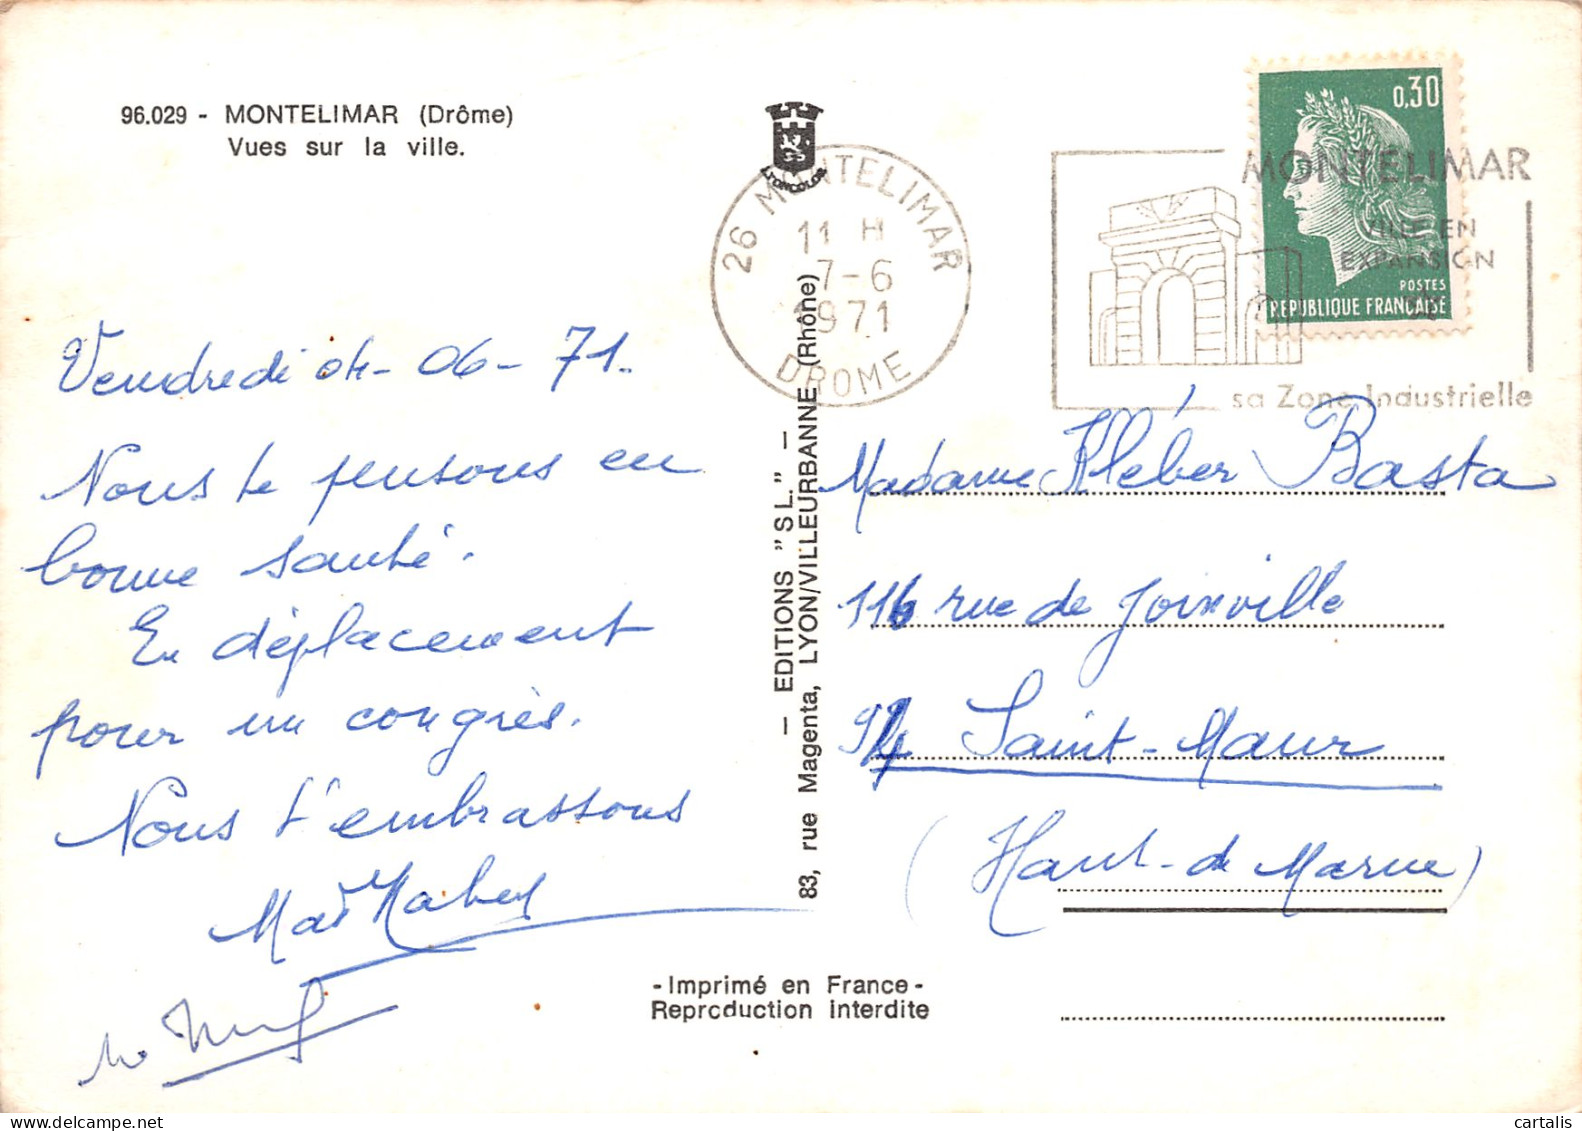 96.029 - MONTELIMAR (Drôme)
Vues sur la ville.
LYONCOLOR
26 MONTELIMAR
11 H
7-6
1971
DROME
0,30
POSTES
REPUBLIQUE FRANÇAISE
MONTELIMAR
VILLE EN
EXPANSION
sa Zone Industrielle
Vendredi 04-06-71.
Nous te pensons en
bonne santé.
En déplacement
pour un congrès.
Nous t'embrassons
— EDITIONS "SL." —
83, rue Magenta, LYON/VILLEURBANNE (Rhône)
Madame Kléber Basta
116 rue de Joinville
94 Saint-Maur
(Haut-de Marne)
-Imprimé en France-
Reproduction interdite
cartalis